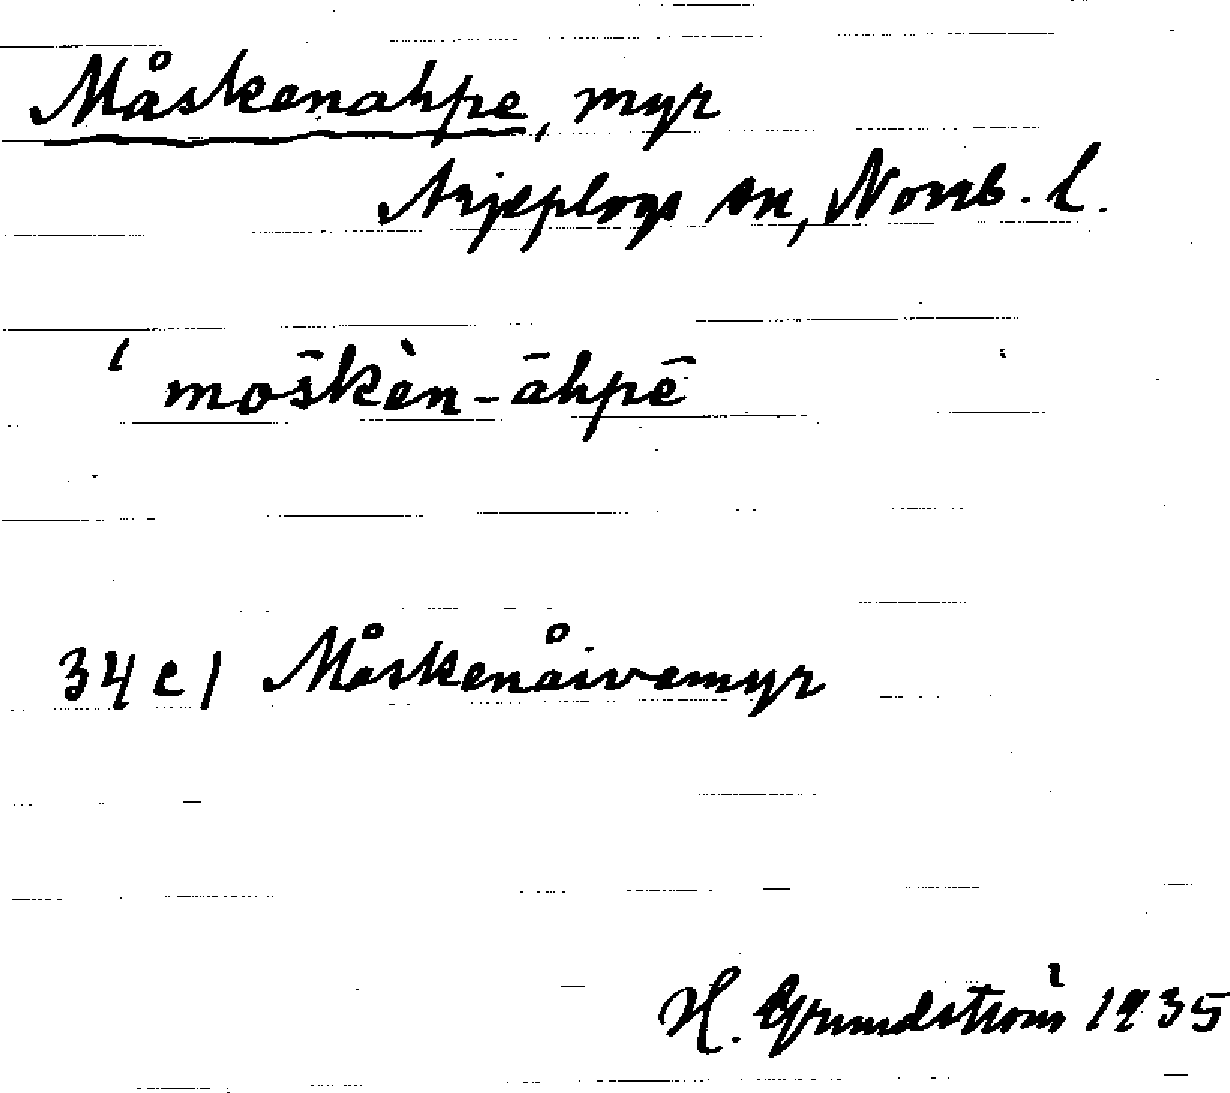 Måskenahpe, myr
Arjeplogs sn, Norrb. l.
ˈmos̄kèn-āhpē
34 c) Måskenåivemyr
H. Grundström 1935